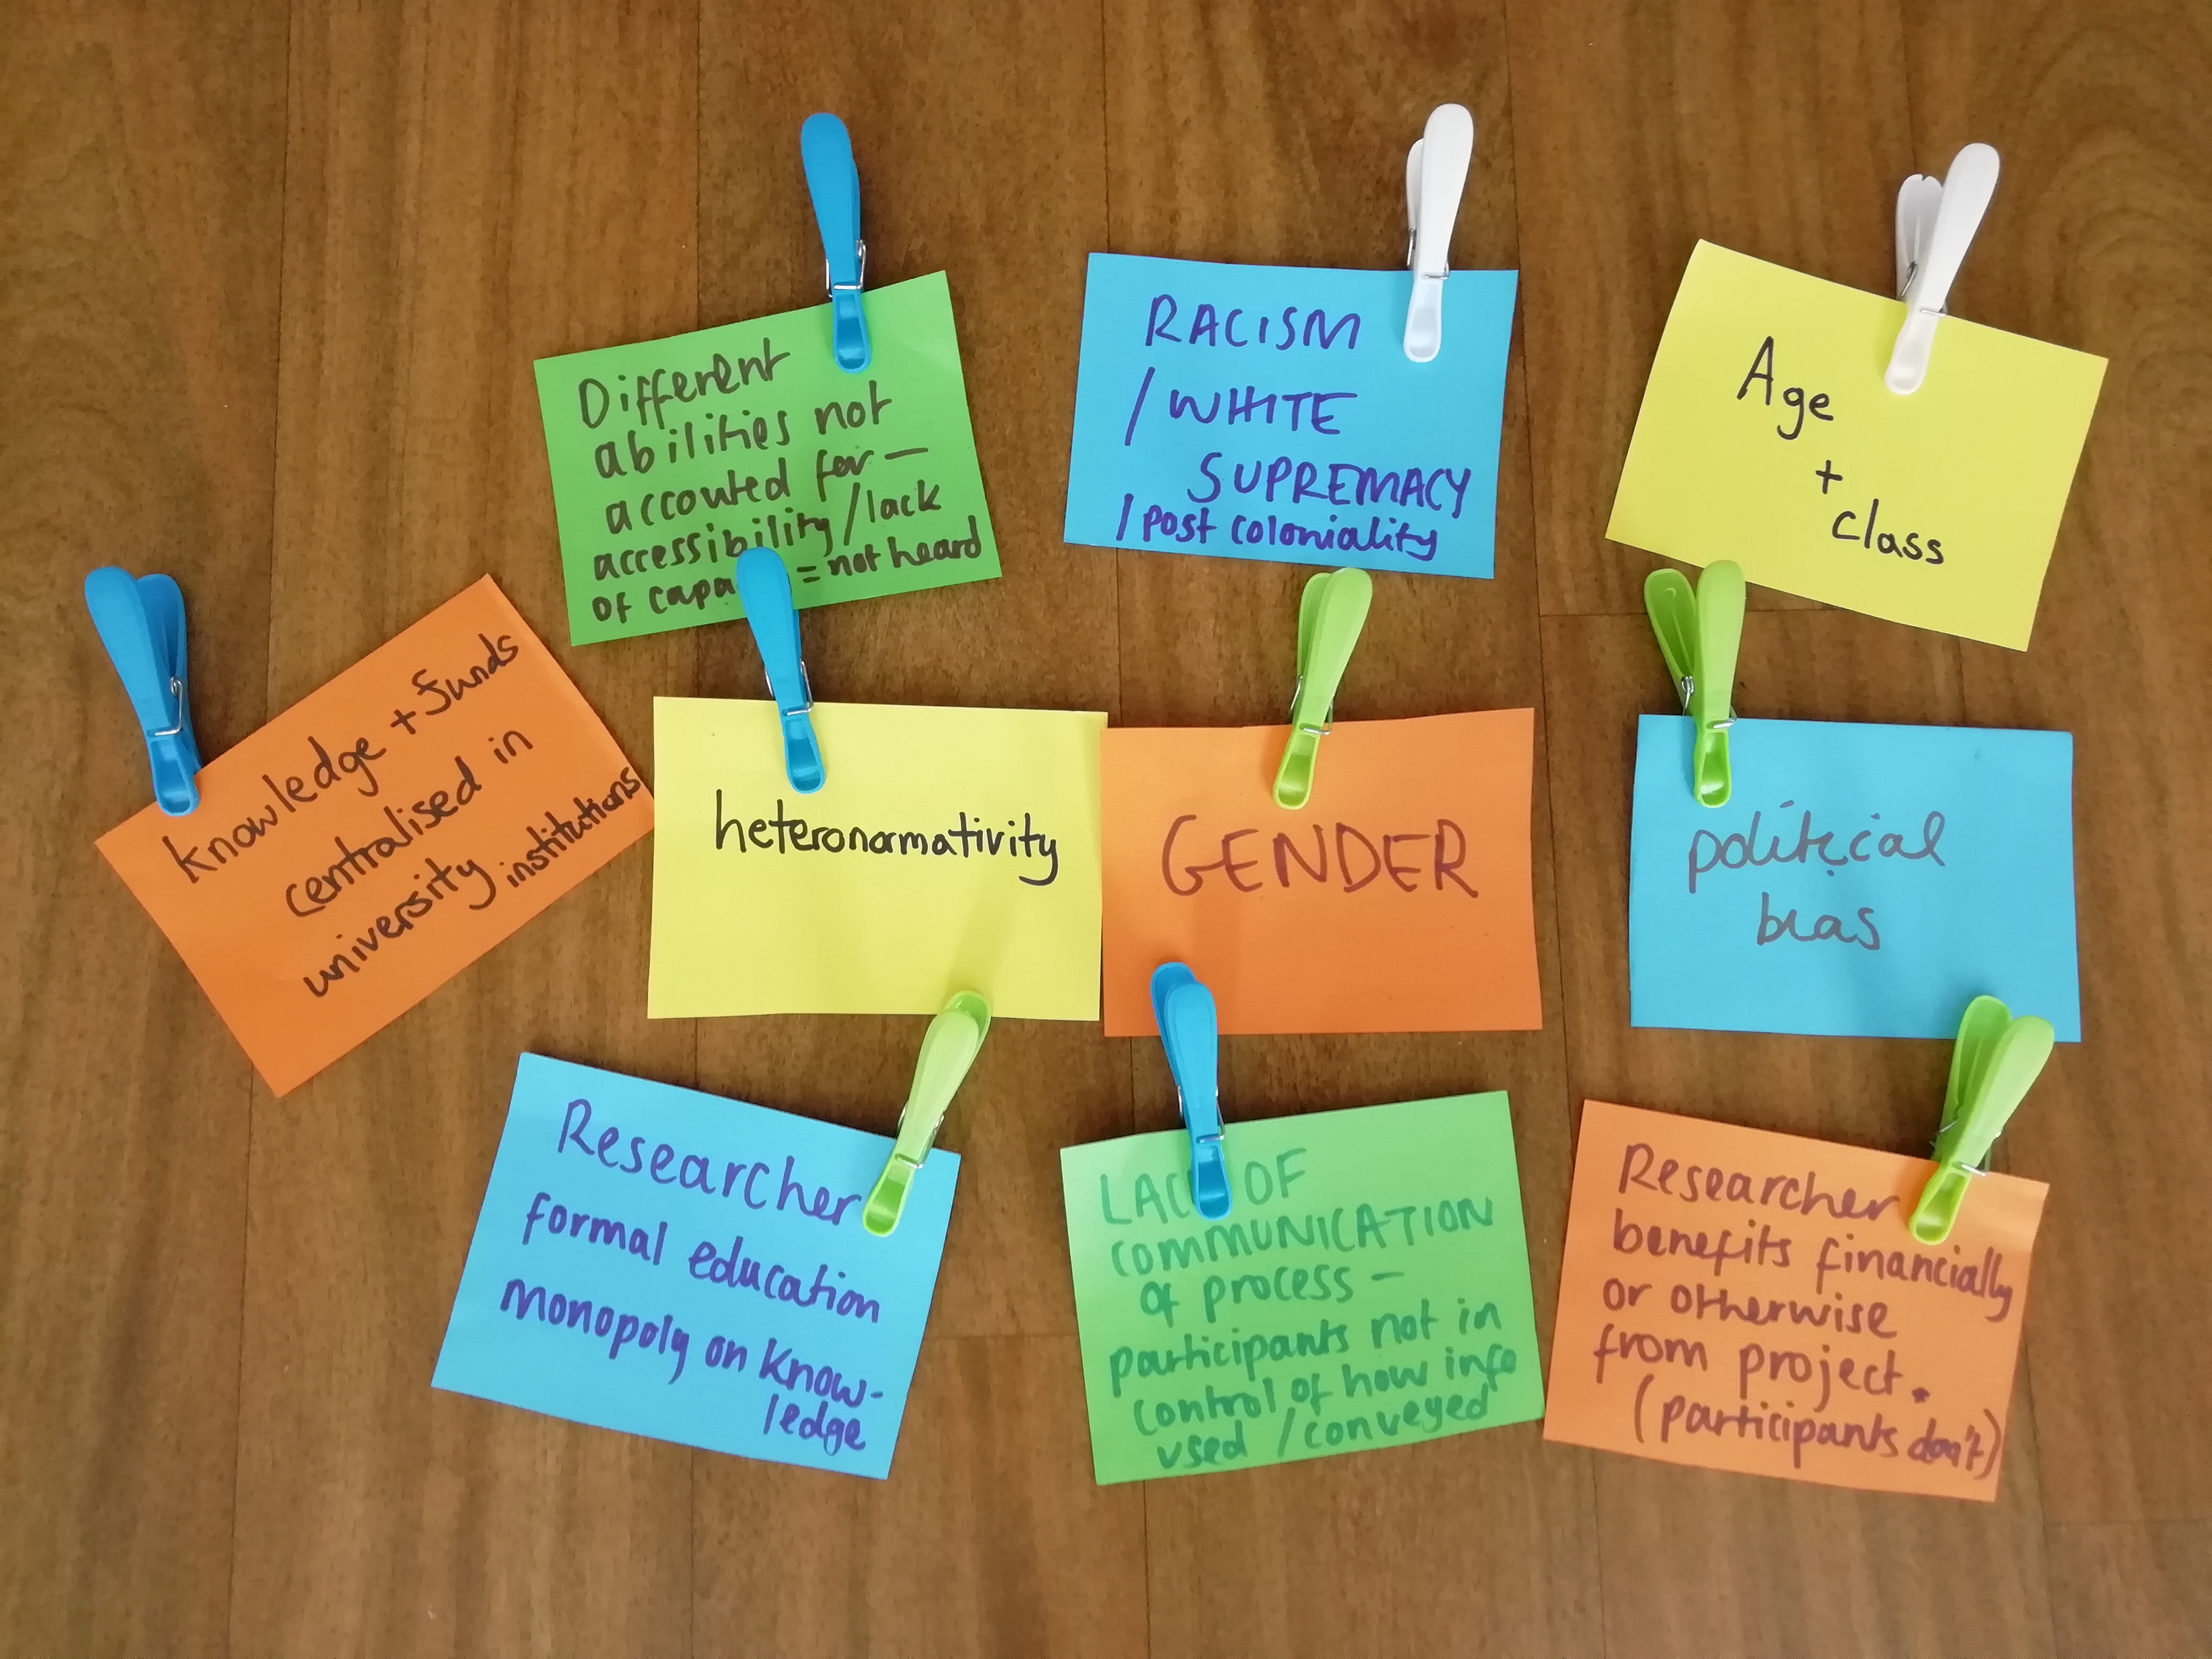 Different
abilities not
accouted for —
accessibility/lack
of = not heard
RACISM
/ WHITE
SUPREMACY
/ post coloniality
Age
+
class
knowledge + funds
centralised in
university institutions
heteronormativity
GENDER
political
bias
Researcher
formal education
monopoly on know-
ledge
LACK OF
COMMUNICATION
of process —
participants not in
control of how info
used / conveyed
Researcher
benefits financially
or otherwise
from project.
(participants don't)